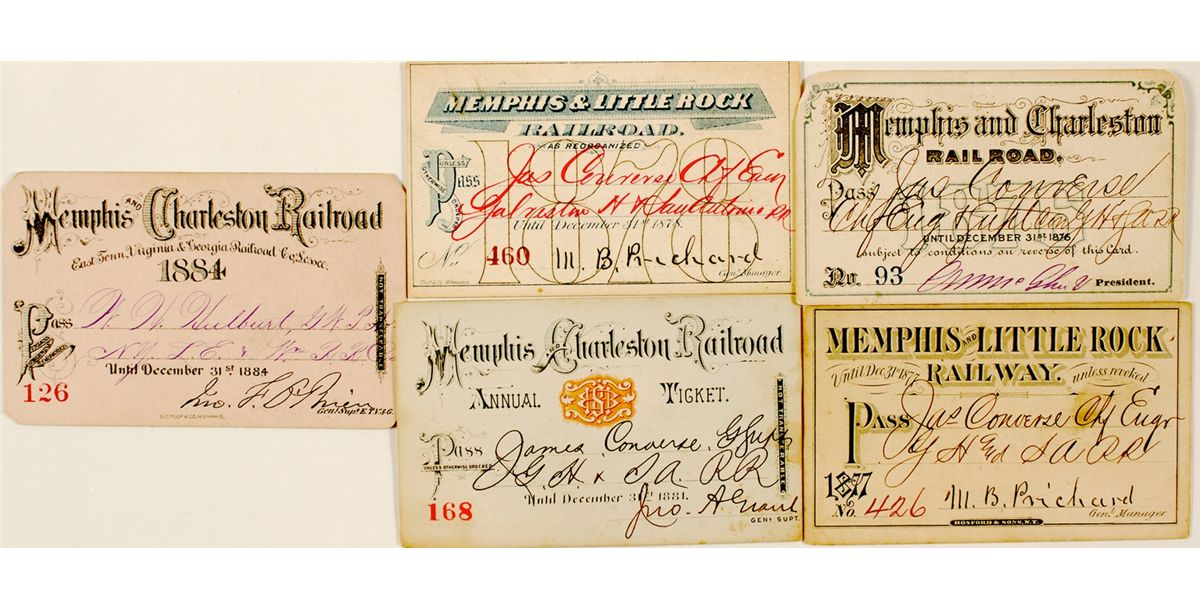 Memphis AND Charleston Railroad
East Tenn, Virginia & Georgia Railroad Co, Lessee.
1884
Pass W. W. Hulburt, G.
N.Y. L.E. & Wn R.R. Co
UNLESS OTHERWISE ORDERED
Until December 31st 1884
126
Jno. F. O'Brien
Genl Supt E.T.V.& G.
NOT TRANSFERABLE
MEMPHIS & LITTLE ROCK
RAILROAD.
AS REORGANIZED
1878
UNLESS OTHERWISE ORDERED
Pass Jas Converse Chf Engr
Galveston H & San Antonio RR
Until December 31st 1878.
No. 460 M. B. Prichard
Genl Manager.
Memphis and Charleston
RAIL ROAD.
Pass Jas Converse
Chf Eng
UNTIL DECEMBER 31st 1876
subject to conditions on reverse of this Card.
No. 93
President.
Memphis AND Charleston Railroad
ANNUAL TICKET.
Pass James Converse, G Supt
UNLESS OTHERWISE ORDERED
G. H. & S A. RR
Until December 31st 1881.
168 Jno. A Grant
GENL SUPT.
NOT TRANSFERABLE
MEMPHIS AND LITTLE ROCK
RAILWAY.
Until Dec. 31st 1877 unless revoked
Pass Jas Converse Chf Engr
G H & S A RR
1877
No. 426 M. B. Prichard
Genl Manager.
HOSFORD & SONS, N.Y.